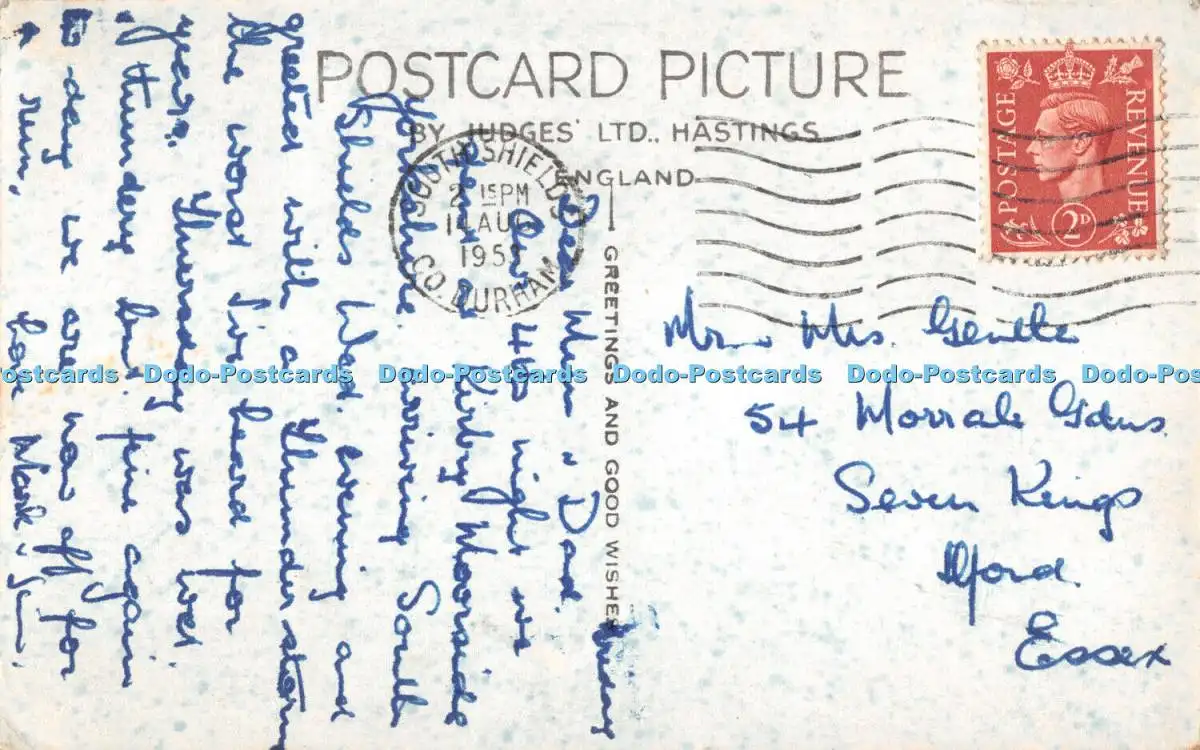 POSTCARD PICTURE
BY JUDGES' LTD., HASTINGS,
ENGLAND
GREETINGS AND GOOD WISHES
SOUTH SHIELDS
2 15 PM
14 AUG
195
CO. DURHAM
POSTAGE
REVENUE
2D
Mr & Mrs. Gentle
54 Gdns.
Seven Kings
Ilford.
Essex
Friday
Dear Mum & Dad.
Our 4th night we
spent at Kirby Moorside
Yorkshire. Arriving South
Shields Wed. evening and
greeted with a Thunder storm
the worst I've heard for
years. Thursday was wet
& thundery but fine again
to day we are now off for
a run, love
Dodo-Postcards Dodo-Postcards Dodo-Postcards Dodo-Postcards Dodo-Postcards Dodo-Postcards